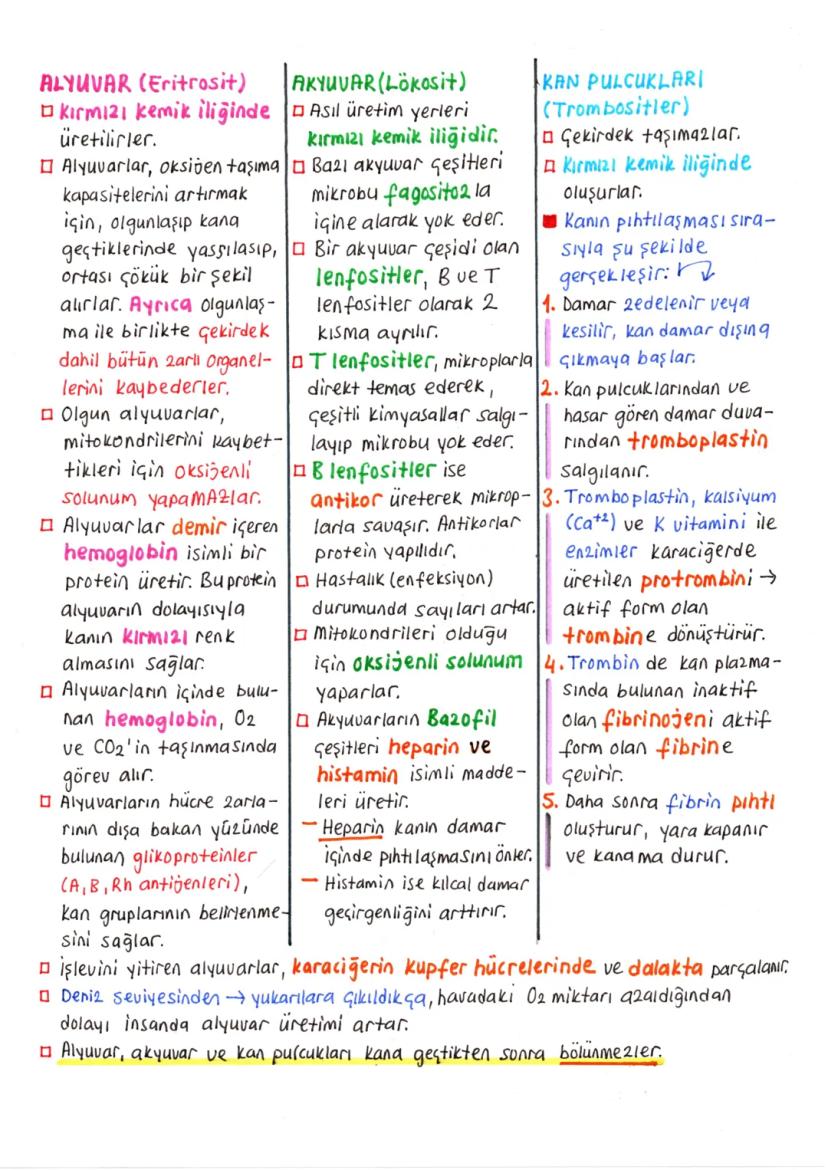 ALYUVAR (Eritrosit)
Kırmızı kemik iliğinde
üretilirler.
Alyuvarlar, oksijen taşıma
kapasitelerini artırmak
için, olgunlaşıp kana
geçtiklerinde yassılaşıp,
ortası çökük bir şekil
alırlar. Ayrıca olgunlaş-
ma ile birlikte çekirdek
dahil bütün zarlı organel-
lerini kaybederler.
Olgun alyuvarlar,
mitokondrilerini kaybet-
tikleri için oksijenli
solunum yapaMAZlar.
Alyuvarlar demir içeren
hemoglobin isimli bir
protein üretir. Bu protein
alyuvarın dolayısıyla
kanın kırmızı renk
almasını sağlar.
Alyuvarların içinde bulu-
nan hemoglobin, O2
ve CO2'in taşınmasında
görev alır.
Alyuvarların hücre zarla-
rının dışa bakan yüzünde
bulunan glikoproteinler
(A, B, Rh antijenleri),
kan gruplarının belirlenme-
sini sağlar.
AKYUVAR (Lökosit)
Asıl üretim yerleri
kırmızı kemik iliğidir.
Bazı akyuvar çeşitleri
mikrobu fagositozla
içine alarak yok eder.
Bir akyuvar çeşidi olan
lenfositler, B ve T
lenfositler olarak 2
kısma ayrılır.
T lenfositler, mikroplarla
direkt temas ederek,
çeşitli kimyasallar salgı-
layıp mikrobu yok eder.
B lenfositler ise
antikor üreterek mikrop-
larla savaşır. Antikorlar
protein yapılıdır.
Hastalık (enfeksiyon)
durumunda sayıları artar.
Mitokondrileri olduğu
için oksijenli solunum
yaparlar.
Akyuvarların Bazofil
çeşitleri heparin ve
histamin isimli madde-
leri üretir.
– Heparin kanın damar
içinde pıhtılaşmasını önler.
– Histamin ise kılcal damar
geçirgenliğini arttırır.
KAN PULCUKLARI
(Trombositler)
Çekirdek taşımazlar.
Kırmızı kemik iliğinde
oluşurlar.
Kanın pıhtılaşması sıra-
sıyla şu şekilde
gerçekleşir:
1. Damar zedelenir veya
kesilir, kan damar dışına
çıkmaya başlar.
2. Kan pulcuklarından ve
hasar gören damar duva-
rından tromboplastin
salgılanır.
3. Tromboplastin, kalsiyum
(Ca+2) ve K vitamini ile
enzimler karaciğerde
üretilen protrombini →
aktif form olan
trombine dönüştürür.
4. Trombin de kan plazma-
sında bulunan inaktif
olan fibrinojeni aktif
form olan fibrine
çevirir.
5. Daha sonra fibrin pıhtı
oluşturur, yara kapanır
ve kanama durur.
işlevini yitiren alyuvarlar, karaciğerin kupfer hücrelerinde ve dalakta parçalanır.
Deniz seviyesinden → yukarılara çıkıldıkça, havadaki O2 miktarı azaldığından
dolayı insanda alyuvar üretimi artar.
Alyuvar, akyuvar ve kan pulcukları kana geçtikten sonra bölünmezler.